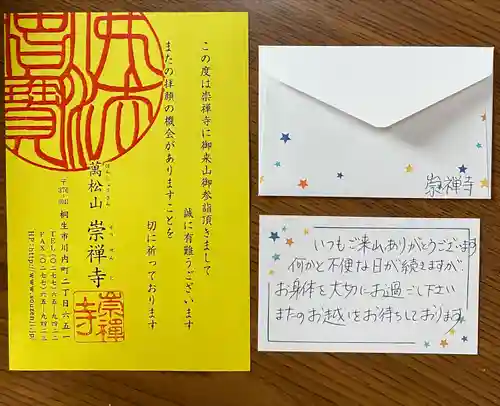 この度は崇禅寺に御来山御参詣頂きまして
誠に有難うございます
またの拝顔の機会がありますことを
切に祈っております
ばんしょうざん そうぜんじ
萬松山 崇禅寺
桐生市川内町二丁目六五一
TEL(〇二七七)六五-九四二二
FAX(〇二七七)六五-九四二三
崇禅寺
崇禅寺
いつもご来山ありがとうございます
何かと不便な日が続きますが
お身体を大切にお過ごし下さい
またのお越しをお待ちしております